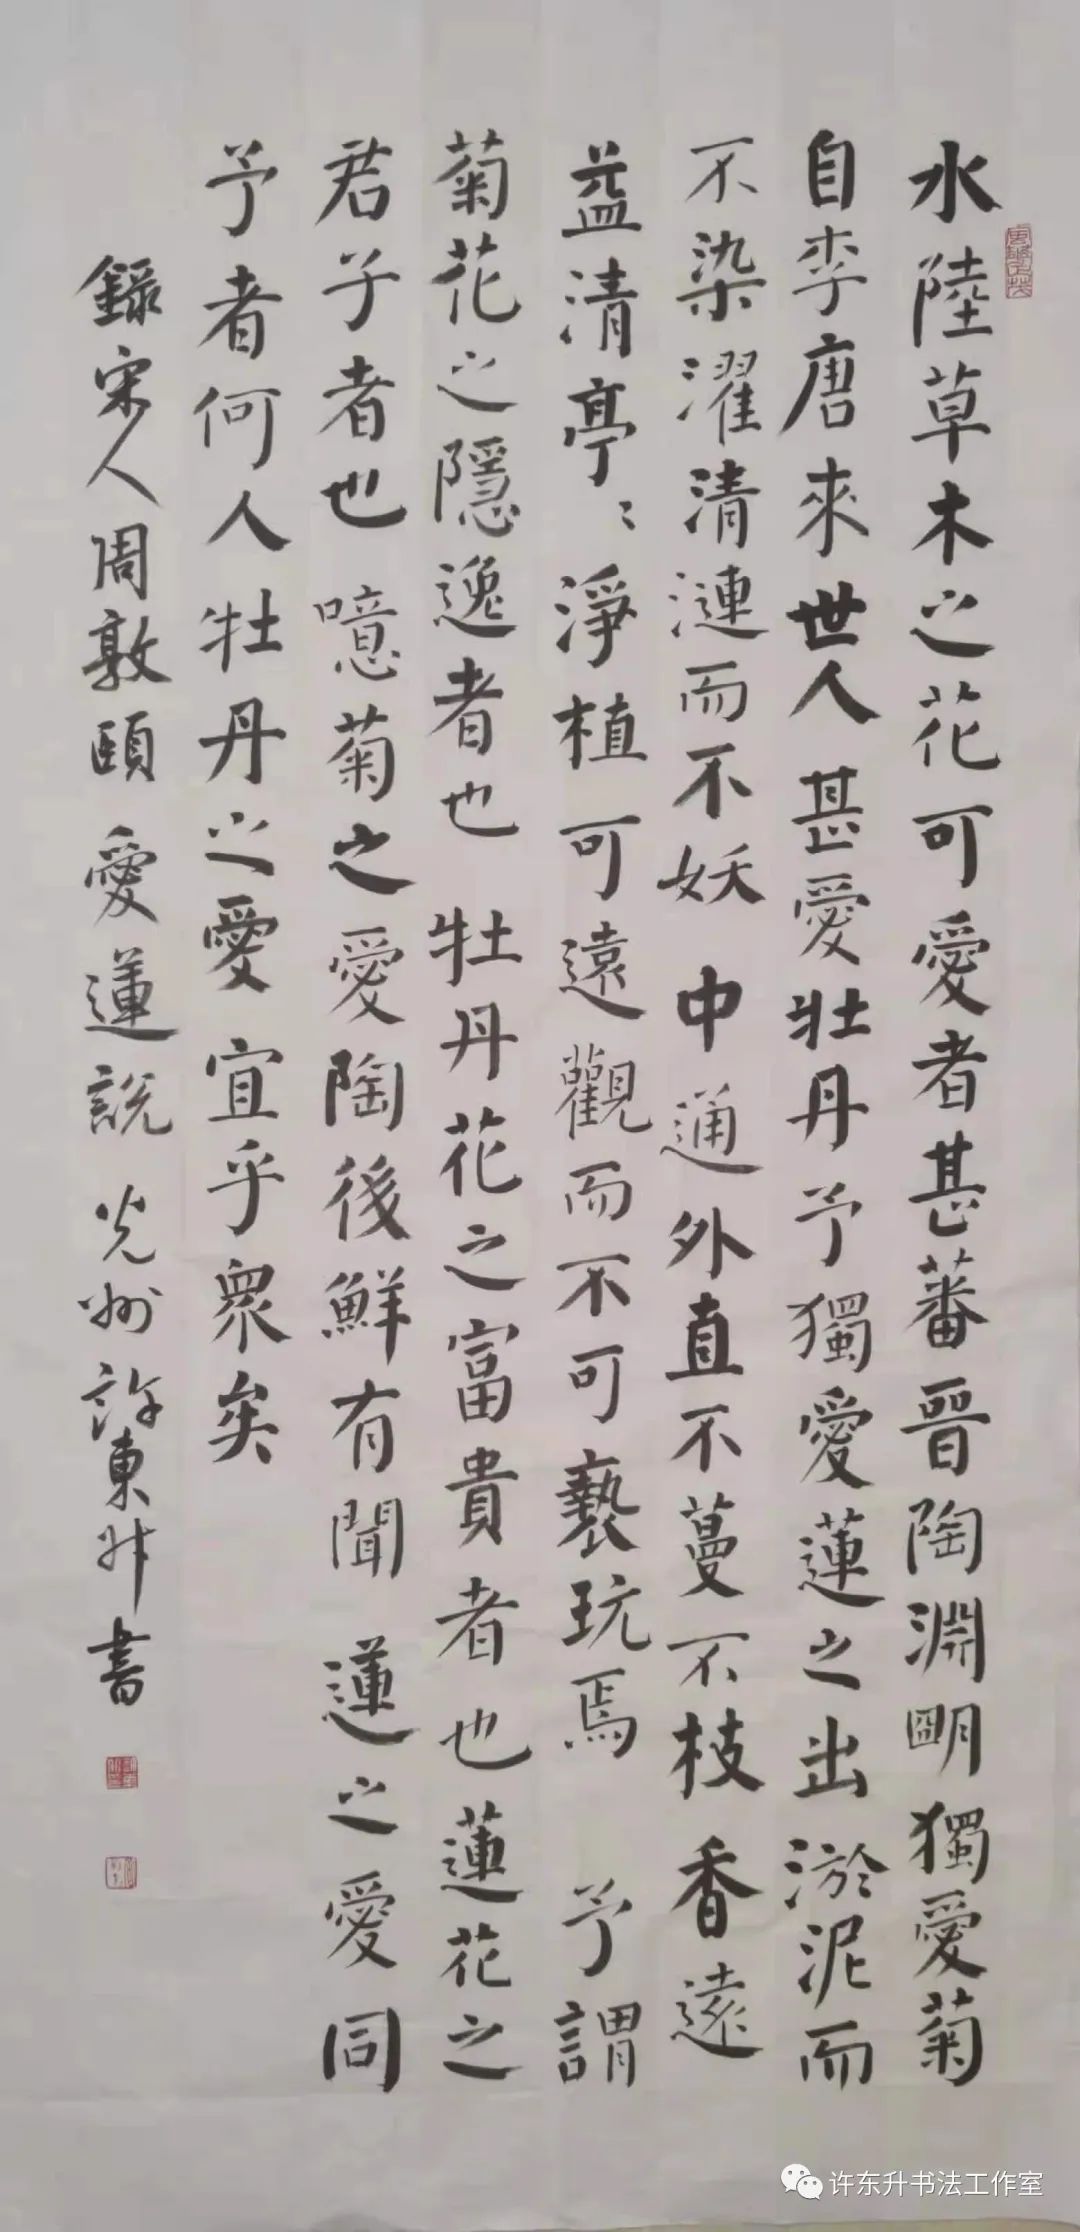 水陸草木之花可愛者甚蕃晉陶淵明獨愛菊
自李唐來世人甚愛牡丹予獨愛蓮之出淤泥而
不染濯清漣而不妖中通外直不蔓不枝香遠
益清亭〻淨植可遠觀而不可褻玩焉予謂
菊花之隱逸者也牡丹花之富貴者也蓮花之
君子者也噫菊之愛陶後鮮有聞蓮之愛同
予者何人牡丹之愛宜乎眾矣
錄宋人周敦頤愛蓮說光州許東升書
许东升书法工作室